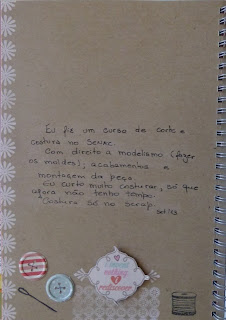 Eu fiz um curso de corte e
costura no SENAC
Com direito a modelismo (fazer
os moldes), acabamentos e
montagem da peça.
Eu curto muito costurar, só que
agora não tenho tempo.
Costura só no scrap.
set/13